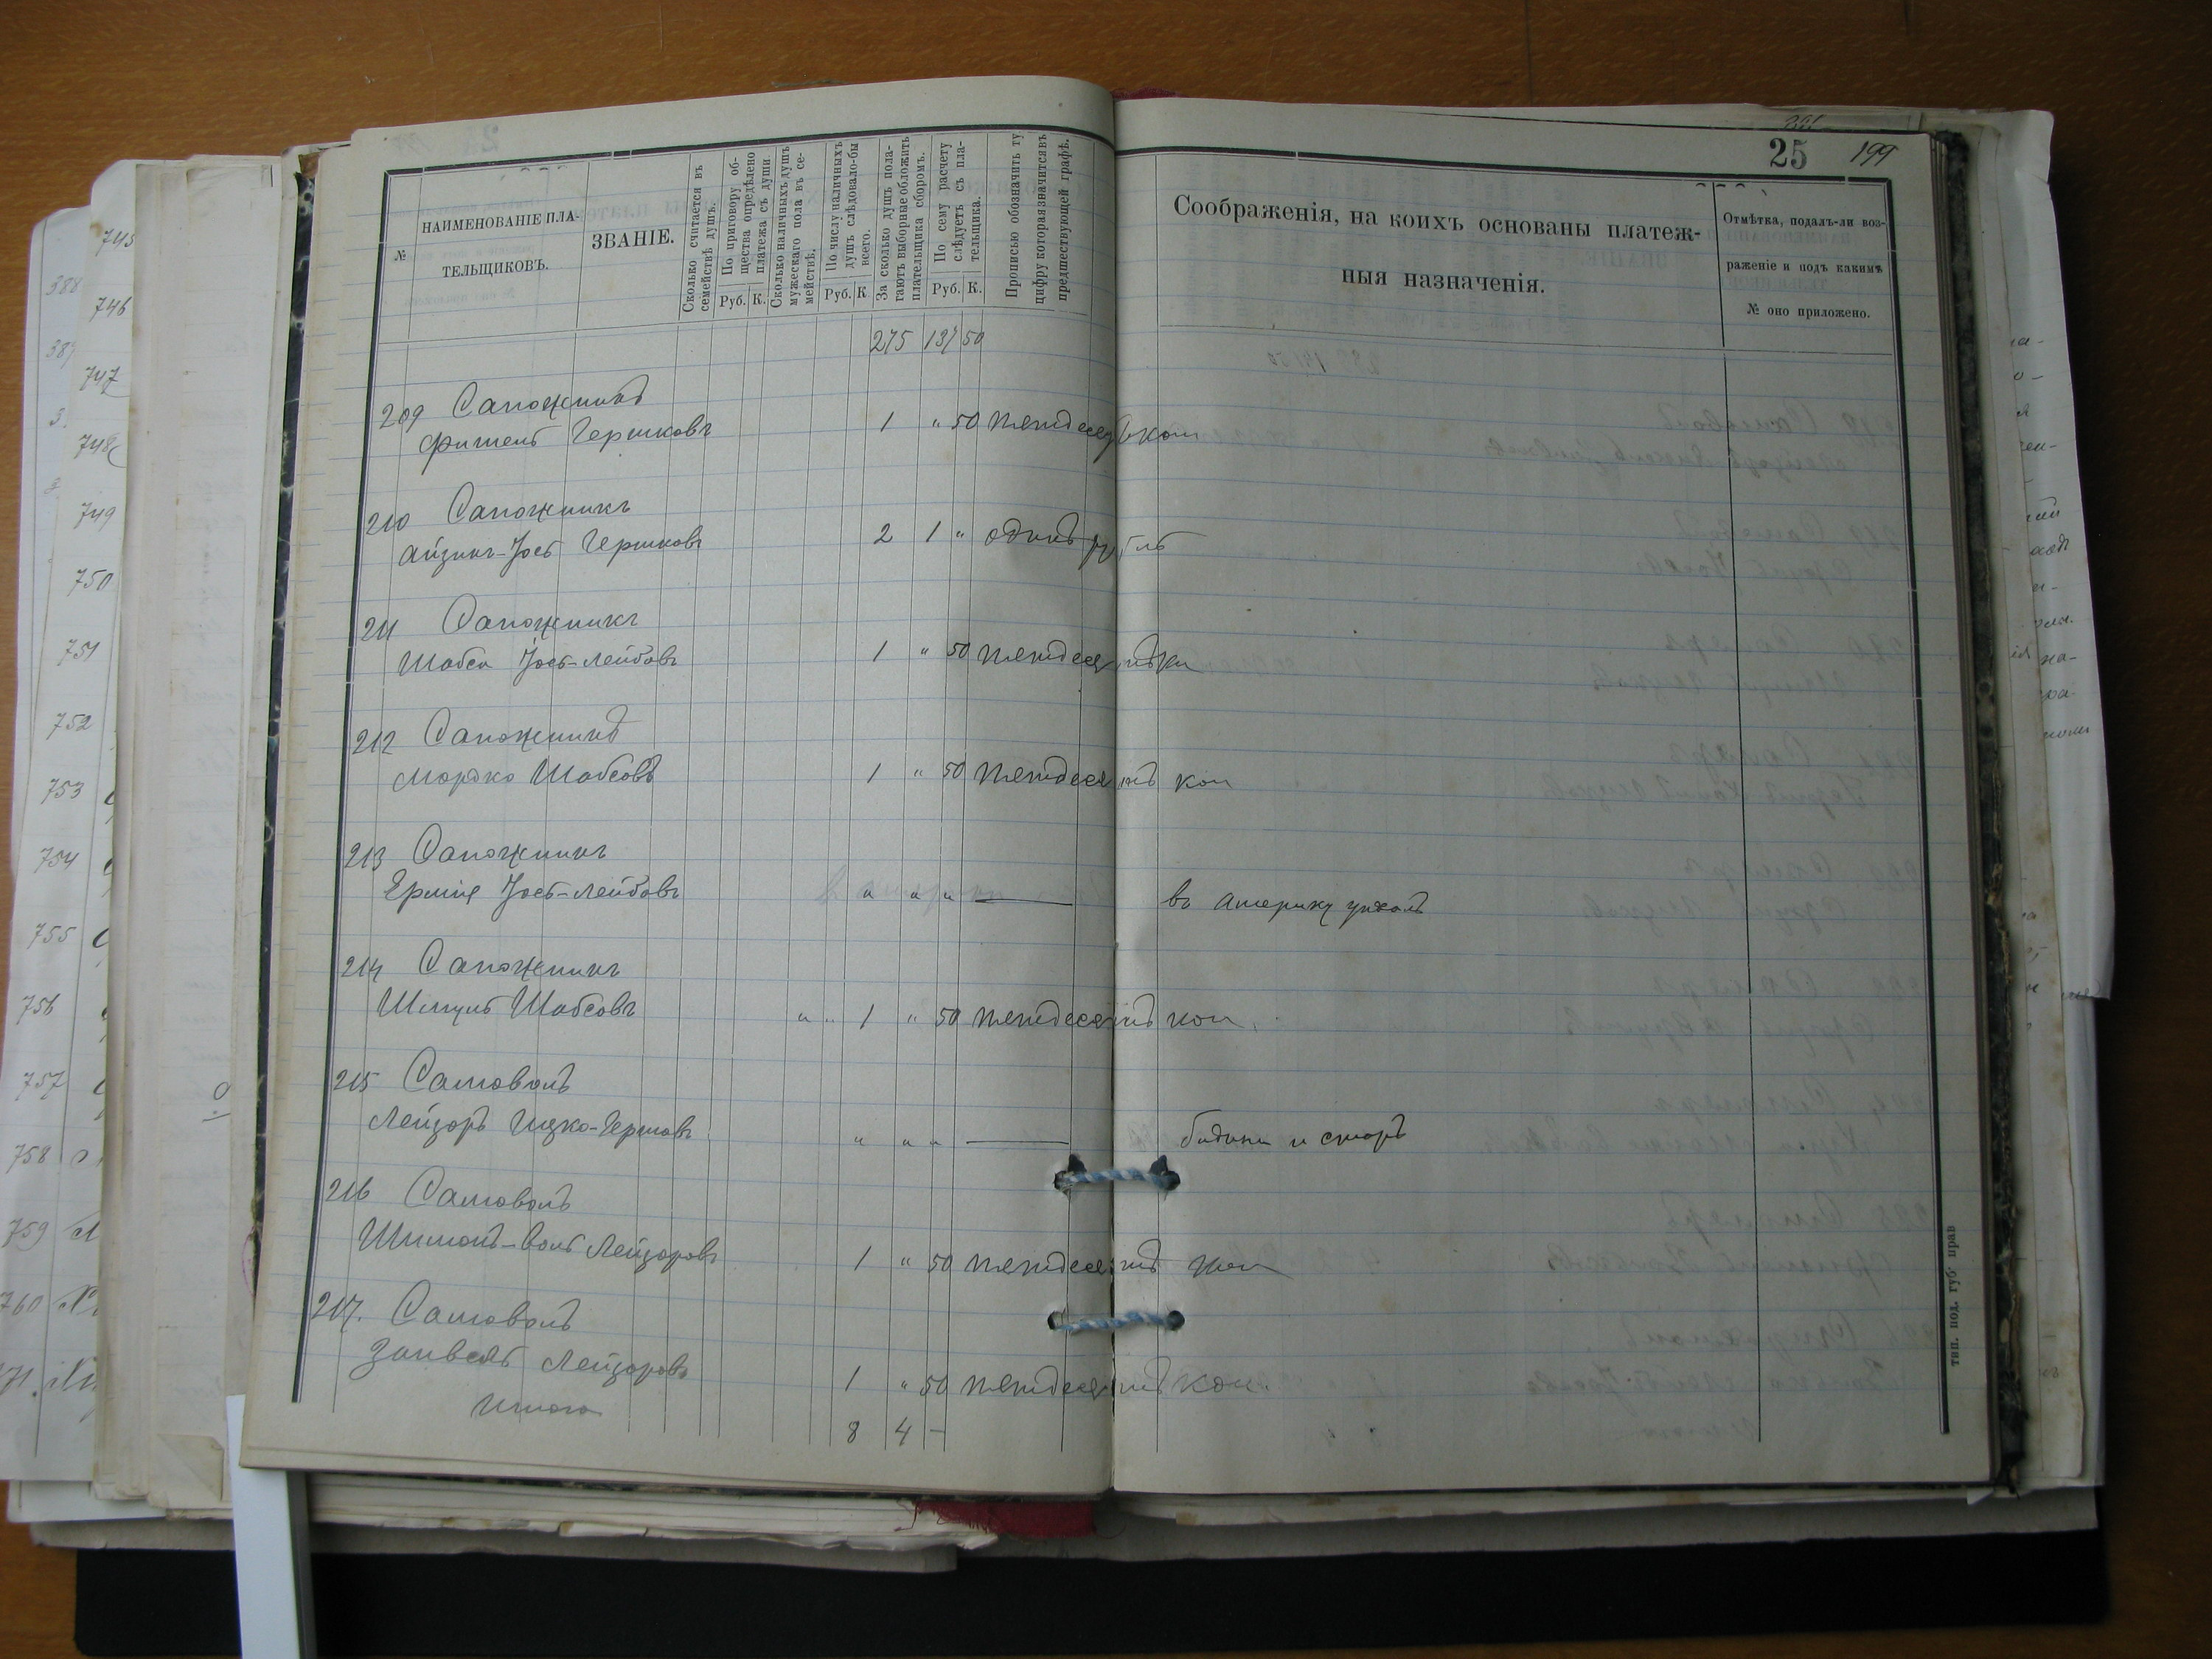 25 199
№
НАИМЕНОВАНІЕ ПЛА-
ТЕЛЬЩИКОВЪ.
ЗВАНІЕ.
Сколько считается въ
семействѣ душъ.
По приговору об-
щества опредѣлено
платежа съ души
Руб. К.
Сколько наличныхъ душъ
мужескаго пола въ се-
мействѣ.
По числу наличныхъ
душъ слѣдовало-бы
всего.
Руб. К
За сколько душъ пола-
гаютъ выборные обложить
плательщика сборомъ.
По сему расчету
слѣдуетъ съ пла-
тельщика.
Руб. К.
Прописью обозначить ту
цифру которая значится въ
предшествующей графѣ.
Соображенія, на коихъ основаны платеж-
ныя назначенія.
Отмѣтка, подалъ-ли воз-
раженіе и подъ какимъ
№ оно приложено.
275 137 50
209 Сапожникъ
Фишель Гершковъ 1 " 50 пятдесятъ коп
210 Сапожникъ
Айзикъ-Іосъ Гершковъ 2 1 " одинъ рубль
211 Сапожникъ
Шабса Іосъ-Лейбовъ 1 " 50 пятдесятъ коп
212 Сапожникъ
Мордко Шабсовъ 1 " 50 пятдесятъ коп
213 Сапожникъ
Ермія Іосъ-Лейбовъ " " " — въ Америку уѣхалъ
214 Сапожникъ
Шмуль Шабсовъ " " 1 " 50 пятдесятъ коп.
215 Самоволъ
Лейзоръ Ицко-Гершовъ " " " — и старъ
216 Самоволъ
Шимонъ-Воль Лейзоровъ 1 " 50 пятдесятъ коп
217. Самоволъ
Занвель Лейзоровъ 1 " 50 пятдесятъ коп.
Итого 8 4 —
тип. под. губ. прав
745
746
747
748
749
750
751
752
753
754
755
756
757
758
759
760